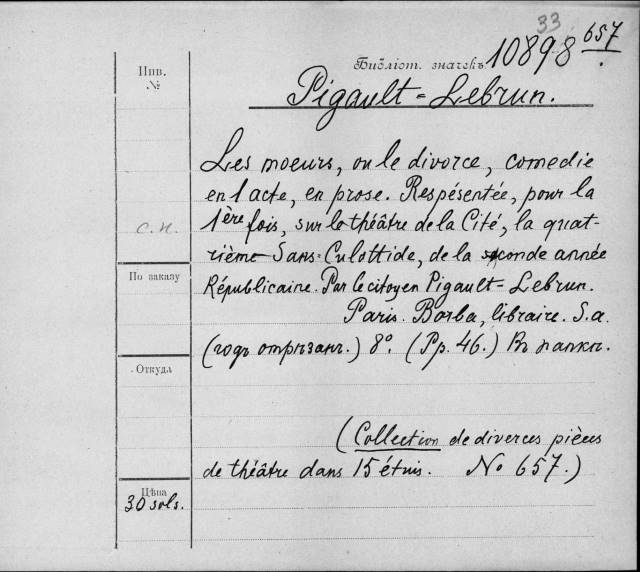 33
Библіот. значекъ 10898 657
Инв.
№
Pigault=Lebrun.
Les moeurs, ou le divorce, comedie
en 1 acte, en prose. Respésentée, pour la
1ère fois, sur le théâtre de la Cité, la quat-
с.п.
rième Sans-Culottide, de la seconde année
По заказу
Républicaine. Par le citoyen Pigault=Lebrun.
Paris. Barba, libraire. S.a.
(годъ отрѣзанъ.) 8º. (Pp. 46.) Въ папкѣ.
Откуда
(Collection de diverces pièces
de théâtre dans 15 étuis. No 657.)
Цѣна
30 sols.